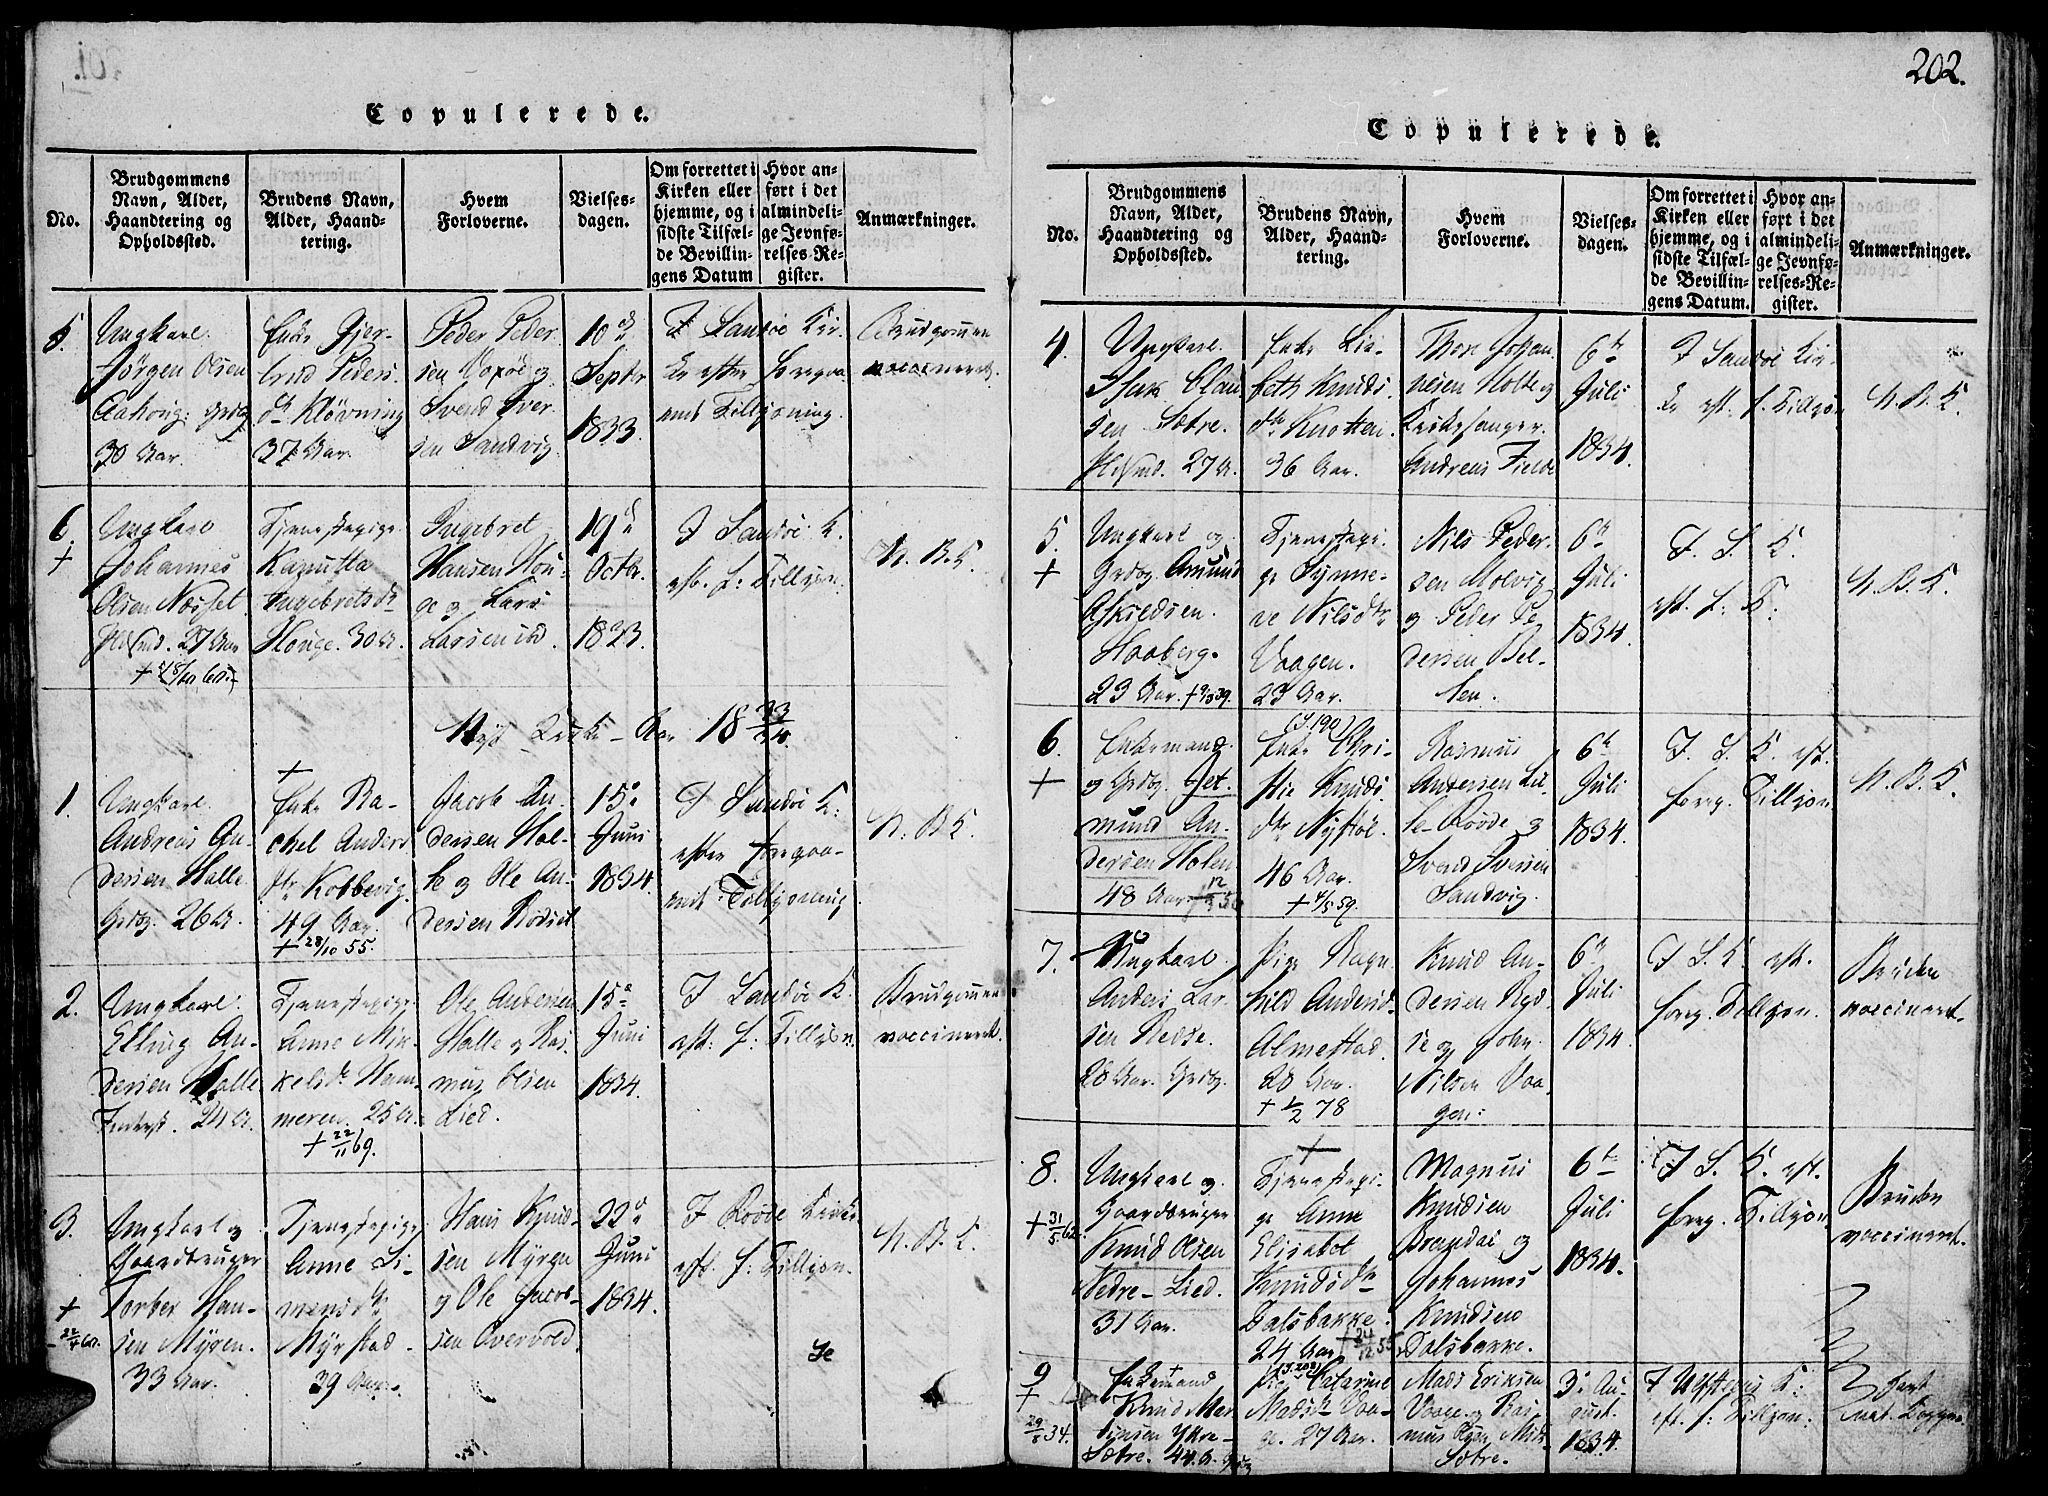 202.
Copulerede.
No.
Brudgommens
Navn, Alder,
Haandtering og
Opholdssted.
Brudens Navn,
Alder, Haand-
tering.
Hvem
Forloverne.
Vielses-
dagen.
Om forrettet i
Kirken eller
hjemme, og i
sidste Tilfæl-
de Bevillin-
gens Datum
Hvor an-
ført i det
almindeli-
ge Jevnfø-
relses-Re-
gister.
Anmærkninger.
5.
Ungkarl
Jörgen Olsen
30 Aar.
Enke Gjer-
trud Peders-
dr Klövning
37 Aar.
Peder Peder
sen Voxöe og
Svend Iver
sen Sandvig
10de
Septbr
1833.
I Sandöe Kir
ke efter foregaa
ende Tillysning.
Brudgommen
vaccineret.
6.
+
Ungkarl
Johannes
Olsen Næsset
Huusmd. 27 Aar
Tjenestepige
Kanutta
Ingebretsdr
Houge. 30 A.
Ingebret
Hansen Hou-
ge og Lars
Larsen ibd.
19de
Octbr.
1833.
I Sandöe K.
eft. f: Tillysn.
N. B. K.
Nyt Kirke-Aar 18 33/34.
1.
Ungkarl
Andreas An-
dersen Halle
Grdbr. 26 A.
+
Enke Ra-
chel Anders
dtr Kobbevig.
49 Aar.
+ 28/10 55.
Jacob An-
dersen Hol-
te og Ole An-
dersen Rödset
15de
Juni
1834.
I Sandöe K:
efter foregaa-
ende Tillysning
N. B. K.
2.
Ungkarl
Elling An-
dersen Halle
24 A.
Tjenestepige
Anne Mik-
kelsdr Ham
meren. 25 A.
+ 22/11 69.
Ole Andersen
Halle og Ras-
mus Olsen
Lied.
15de
Juni
1834.
I Sandöe K.
eft: f: Tillysn.
Brudgommen
vaccineret.
3.
+
Ungkarl og
Gaardbruger
Torber Han-
sen Myren.
33 Aar.
Tjenestepige
Anne Si-
monsdtr
Myrstad
39 Aar.
Hans Knud-
sen Myren
og Ole Jacob-
sen Overvold
22de
Juni
1834.
I Roöde Kirke
eft. f: Tillysn.
N. B. K.
Copulerede.
No.
Brudgommens
Navn, Alder,
Haandtering og
Opholdssted.
Brudens Navn,
Alder, Haand-
tering.
Hvem
Forloverne.
Vielses-
dagen.
Om forrettet i
Kirken eller
hjemme, og i
sidste Tilfæl-
de Bevillin-
gens Datum.
Hvor an-
ført i det
almindeli-
ge Jevnfø-
relses-Re-
gister.
Anmærkninger.
4.
Ungkarl
Isak Clau
sen Sætre.
Huusmd. 27 A.
Enke Lisa-
beth Knuds-
dtr Knotten.
36 Aar.
Thore Johan
nesen Holte og
Kirkesanger
Andreas Fielde
6te
Juli
1834.
I Sandöe Kir
ke eft. f. Tillysn.
N. B. K.
5.
+
Ungkarl og
Grdbr. Amund
Askildsen
Haaberg.
23 Aar.
Tjenestepi-
ge Synne-
ve Nilsdtr
Vaagen.
23 Aar.
Nils Peder-
sen Molvig
og Peder Pe-
dersen Bel-
len.
6te
Juli
1834.
I. S. K.
eft. f: T:
N. B. K.
6.
+
Enkemand
og Grdbr. Jet-
mund An-
dersen Holen
48 Aar
(S.190)
Enke Chri-
stie Knuds-
dtr Nystöl.
46 Aar.
+ 4/5 59.
Rasmus
Andersen Lu-
te-Roöde og
Svend Iversen
Sandvig.
6te
Juli
1834.
I. S. K. eft.
foreg. Tillysn.
N. B. K.
7.
Ungkarl
Anders Lar-
sen Redse.
28 Aar. Grdbr.
Pige Ragn
hild Andersd.
Almestad.
28 Aar.
+ 1/2 78
Knud An-
dersen Ryd-
se og John
Nilsen Vaa-
gen:
6te
Juli
1834.
I S. K. eft.
foreg. Tillysn.
Bruden
vaccineret.
8.
+ 31/5 62.
Ungkarl og
Gaardbruger
Knud Olsen
Nedre-Lied.
31 Aar.
+
Tjenestepi-
ge Anne
Elisabet
Knudsdtr
Dalsbakke.
24 Aar + 24/12 55.
Magnus
Knudsen
Brandal og
Johannes
Knudsen
Dalsbakke.
6te
Juli
1834.
I S. K. eft.
foreg. Tillysn.
Bruden
vaccineret.
9
+
29/8 34.
Enkemand
Knud Mar
tinsen Ykre-
Sætre. 44 A. Grdbr
Pige Catarine
Madsdr Vaa-
ge. 27 Aar.
Mads Eriksen
Vaage og Ras-
mus Olsen Mids
Sætre.
3de Au-
gust.
1834.
I Ulfstens K:
eft. f: Tillysn:
havt
nat. Kopper